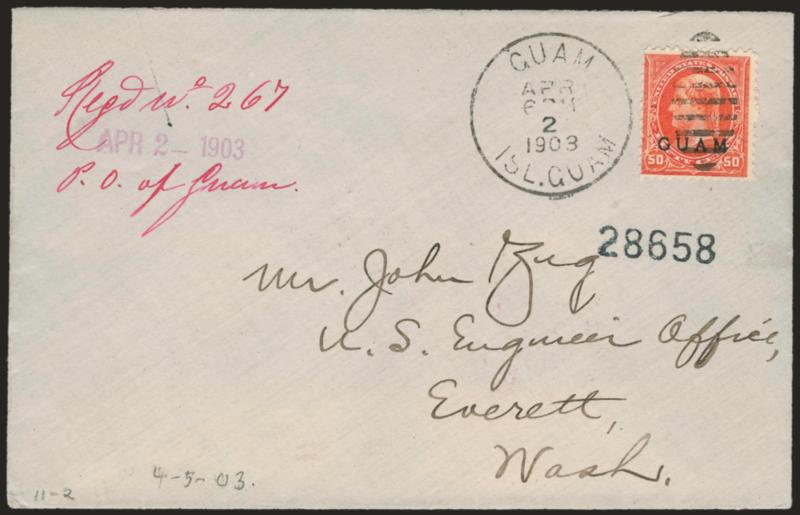 Regd No. 267
APR 2 - 1903
P. O. of Guam.
GUAM
APR
2
1903
ISL. GUAM
GUAM
50 50
28658
Mr. John Zug
U. S. Engineer Office,
Everett,
Wash.
4-5-03.
11-2